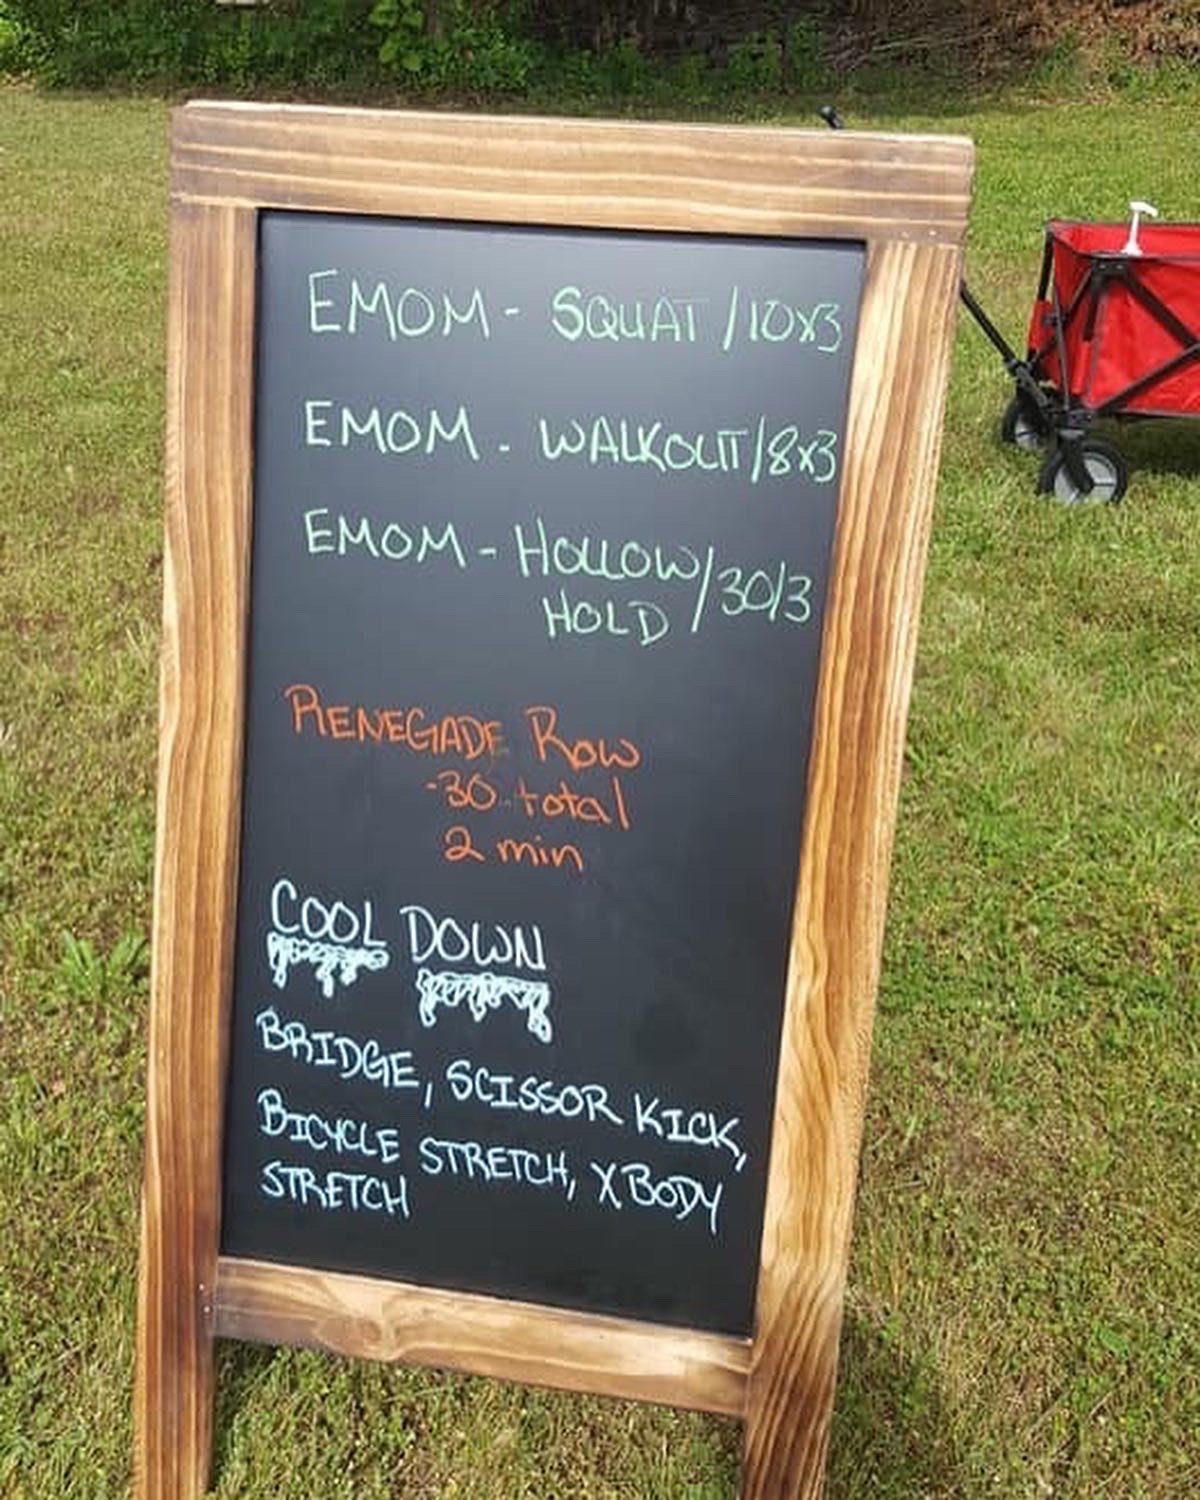 EMOM - SQUAT /10x3
EMOM - WALKOUT/8x3
EMOM - HOLLOW/30/3
HOLD
RENEGADE ROW
-30 total
2 min
COOL DOWN
BRIDGE, SCISSOR KICK,
BICYCLE STRETCH, X BODY
STRETCH